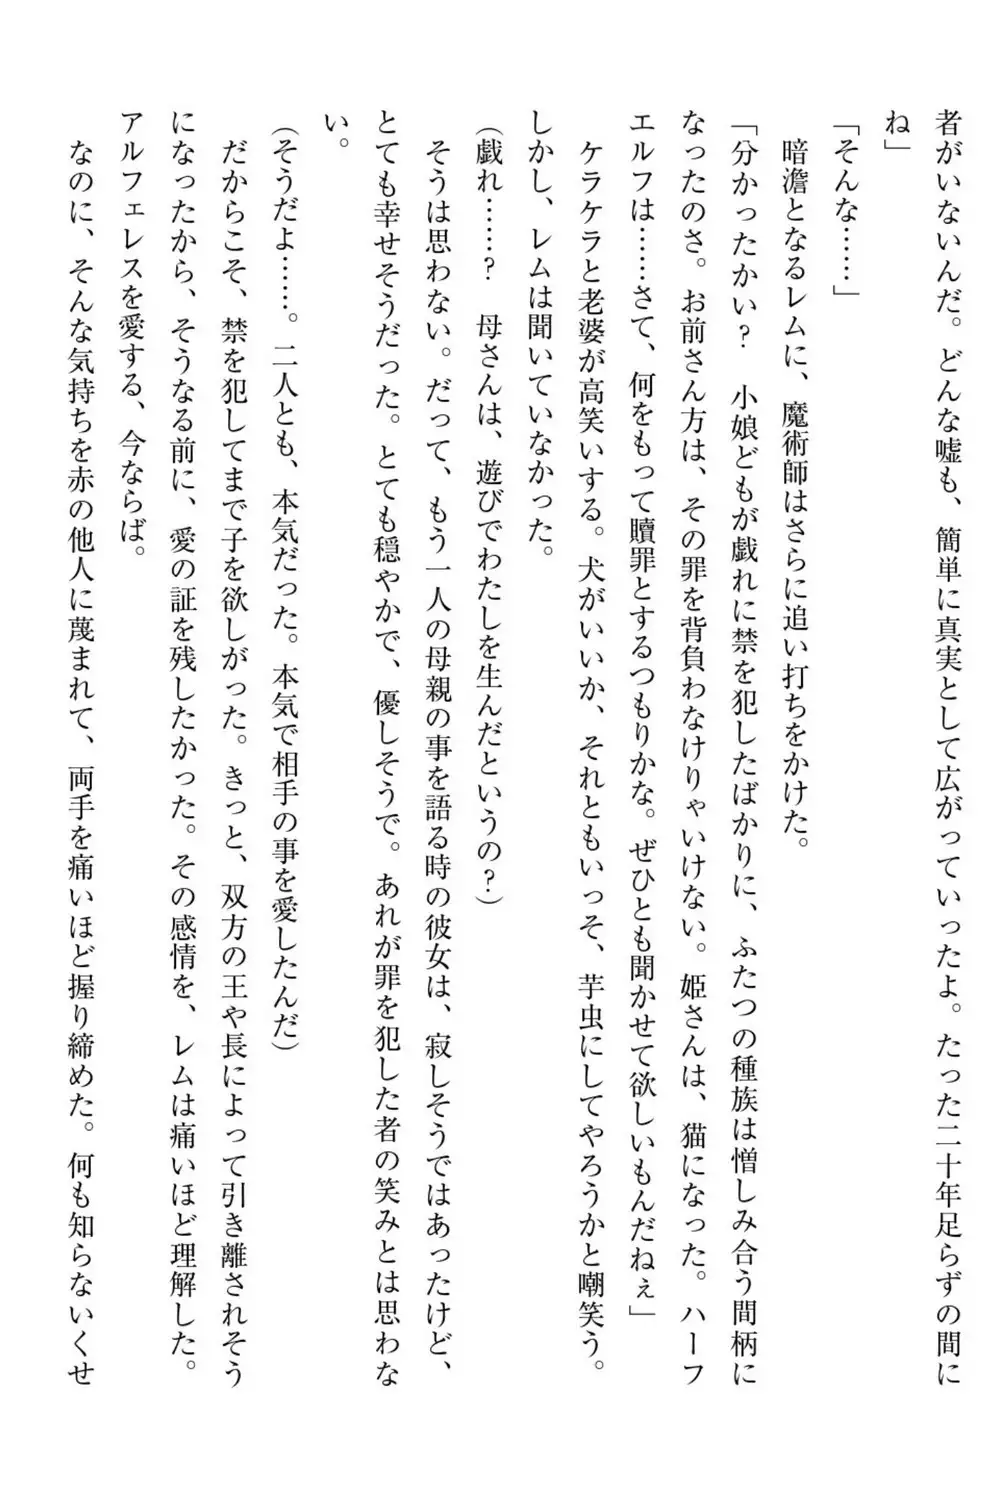 者がいないんだ。どんな嘘も、簡単に真実として広がっていったよ。たった二十年足らずの間に
ね」
「そんな……」
暗澹となるレムに、魔術師はさらに追い打ちをかけた。
「分かったかい？　小娘どもが戯れに禁を犯したばかりに、ふたつの種族は憎しみ合う間柄に
なったのさ。お前さん方は、その罪を背負わなけりゃいけない。姫さんは、猫になった。ハーフ
エルフは……さて、何をもって贖罪とするつもりかな。ぜひとも聞かせて欲しいもんだねぇ」
ケラケラと老婆が高笑いする。犬がいいか、それともいっそ、芋虫にしてやろうかと嘲笑う。
しかし、レムは聞いていなかった。
（戯れ……？　母さんは、遊びでわたしを生んだというの？）
そうは思わない。だって、もう一人の母親の事を語る時の彼女は、寂しそうではあったけど、
とても幸せそうだった。とても穏やかで、優しそうで。あれが罪を犯した者の笑みとは思わな
い。
（そうだよ……。二人とも、本気だった。本気で相手の事を愛したんだ）
だからこそ、禁を犯してまで子を欲しがった。きっと、双方の王や長によって引き離されそう
になったから、そうなる前に、愛の証を残したかった。その感情を、レムは痛いほど理解した。
アルフェレスを愛する、今ならば。
なのに、そんな気持ちを赤の他人に蔑まれて、両手を痛いほど握り締めた。何も知らないくせ